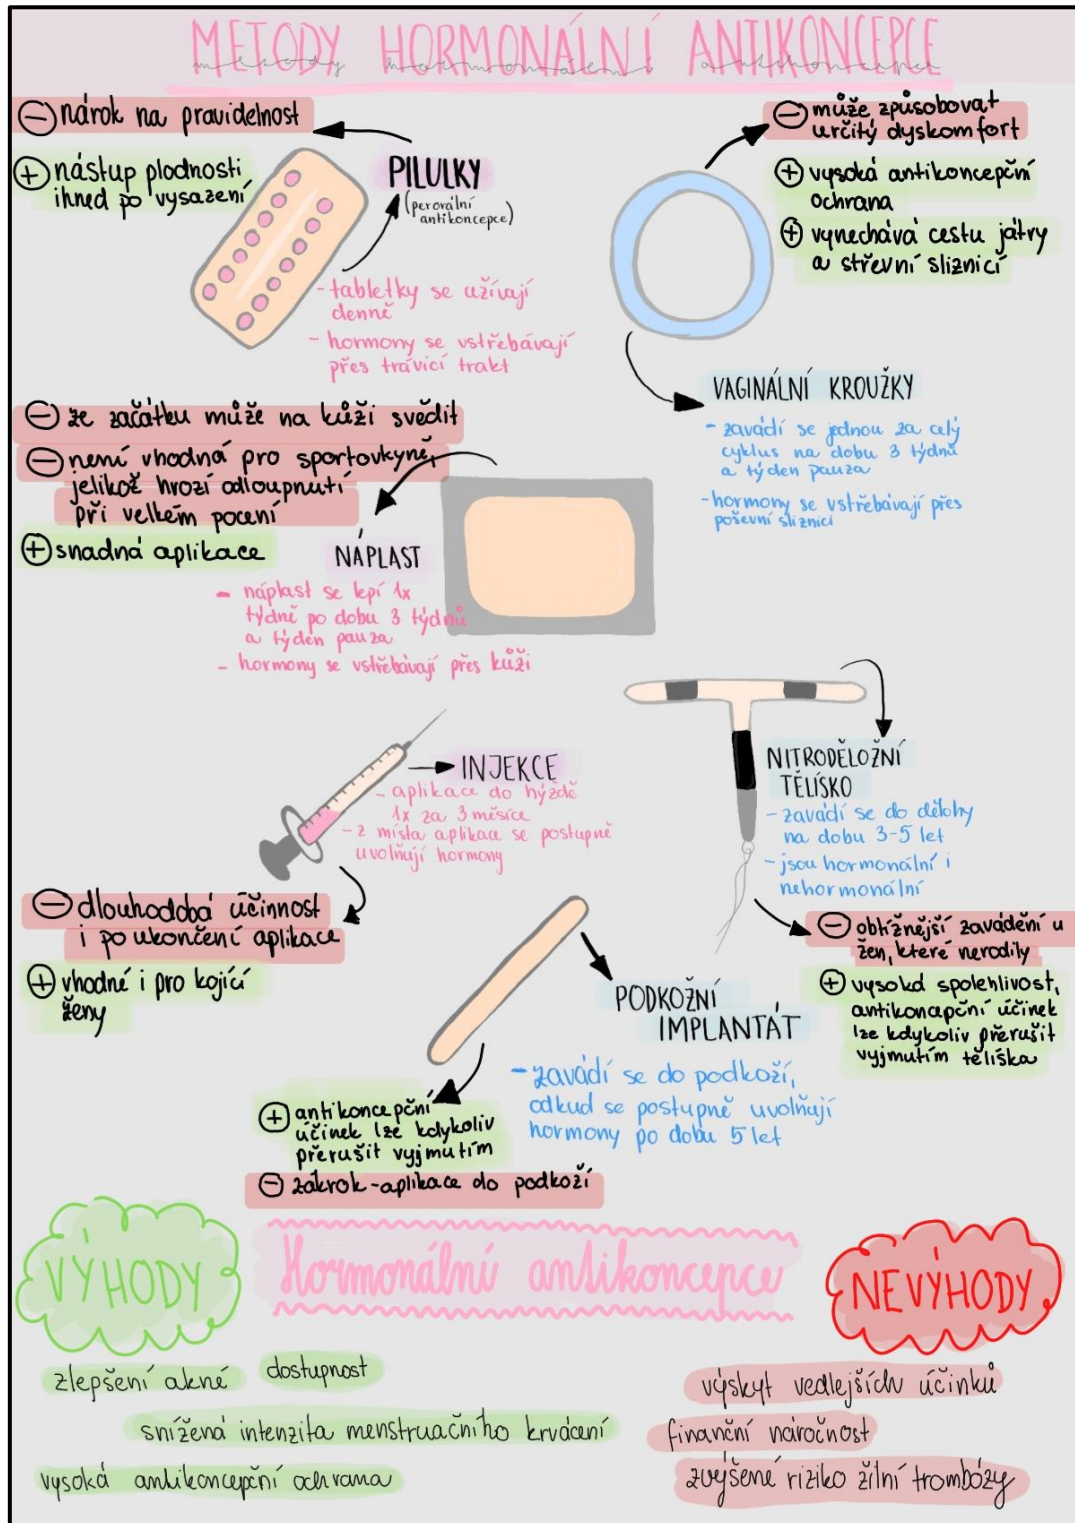 METODY HORMONÁLNÍ ANTIKONCEPCE
metody hormonální antikoncepce
- nárok na pravidelnost
+ nástup plodnosti
ihned po vysazení
PILULKY
(perorální
antikoncepce)
- tabletky se užívají
denně
- hormony se vstřebávají
přes trávicí trakt
- může způsobovat
určitý dyskomfort
+ vysoká antikoncepční
ochrana
+ vynechává cestu játry
a střevní sliznicí
VAGINÁLNÍ KROUŽKY
- zavádí se jednou za celý
cyklus na dobu 3 týdnů
a týden pauza
- hormony se vstřebávají přes
poševní sliznici
- ze začátku může na kůži svědit
- není vhodná pro sportovkyně,
jelikož hrozí odloupnutí
při velkém pocení
+ snadná aplikace
NÁPLAST
- náplast se lepí 1x
týdně po dobu 3 týdnů
a týden pauza
- hormony se vstřebávají přes kůži
INJEKCE
- aplikace do hýždě
1x za 3 měsíce
- z místa aplikace se postupně
uvolňují hormony
- dlouhodobá účinnost
i po ukončení aplikace
+ vhodné i pro kojící
ženy
NITRODĚLOŽNÍ
TĚLÍSKO
- zavádí se do dělohy
na dobu 3-5 let
- jsou hormonální i
nehormonální
- obtížnější zavádění u
žen, které nerodily
+ vysoká spolehlivost,
antikoncapční účinek
lze kdykoliv přerušit
vyjmutím tělíska
PODKOŽNÍ
IMPLANTÁT
- zavádí se do podkoží,
odkud se postupně uvolňují
hormony po dobu 5 let
+ antikoncepční
účinek lze kdykoliv
přerušit vyjmutím
- zákrok - aplikace do podkoží
VÝHODY
Hormonální antikoncepce
NEVÝHODY
zlepšení akné
dostupnost
snížená intenzita menstruačního krvácení
vysoká antikoncepční ochrana
výskyt vedlejších účinků
finanční náročnost
zvýšené riziko žilní trombózy